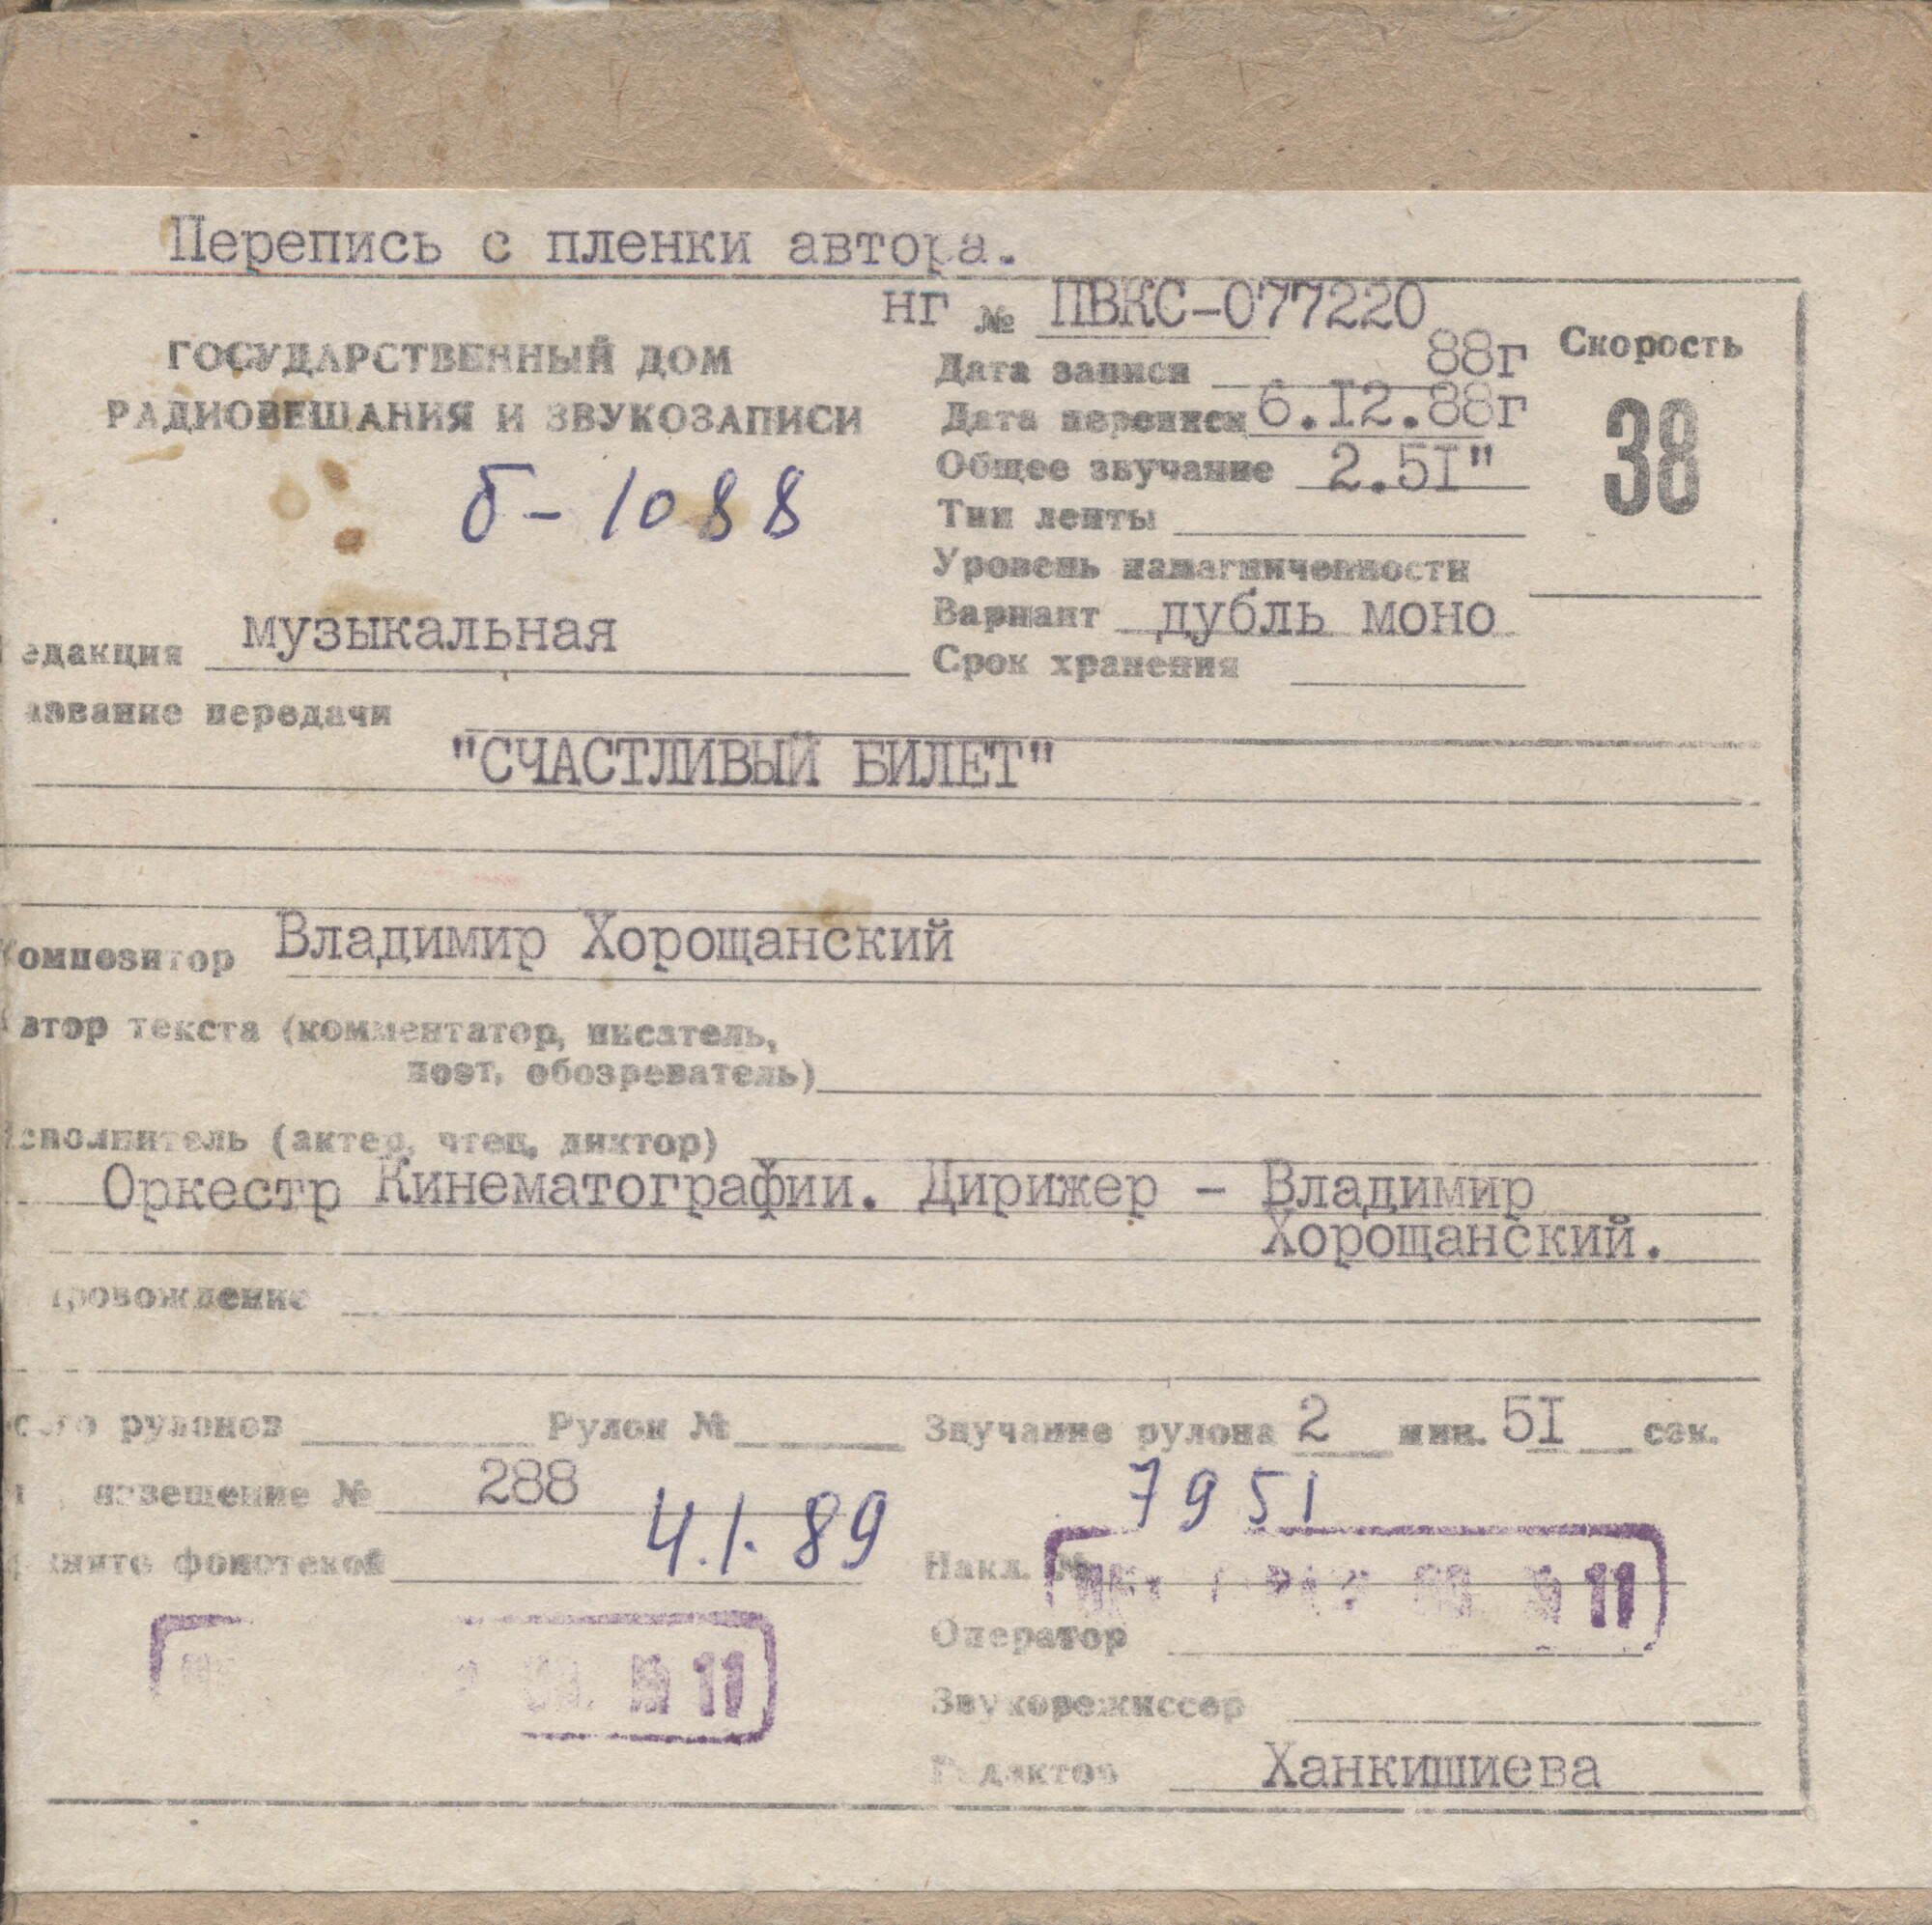 Перепись с пленки автора.
нг № ПВКС-077220
ГОСУДАРСТВЕННЫЙ ДОМ
РАДИОВЕЩАНИЯ И ЗВУКОЗАПИСИ
Дата записи 88г
Дата переписи 6.I2.88г
Общее звучание 2.5I"
Тип ленты
Уровень намагниченности
Вариант дубль моно
Срок хранения
Скорость
38
б-1088
едакция музыкальная
азвание передачи
"СЧАСТЛИВЫЙ БИЛЕТ"
Композитор Владимир Хорощанский
Автор текста (комментатор, писатель,
поэт, обозреватель)
исполнитель (актер, чтец, диктор)
Оркестр Кинематографии. Дирижер - Владимир
Хорощанский.
провождение
рулонов Рулон № Звучание рулона 2 мин. 5I сек.
извещение № 288
7951
фонотекой 4.1.89
Накл. №
№ 11
Оператор
№ 11
Звукорежиссер
Редактор Ханкишиева